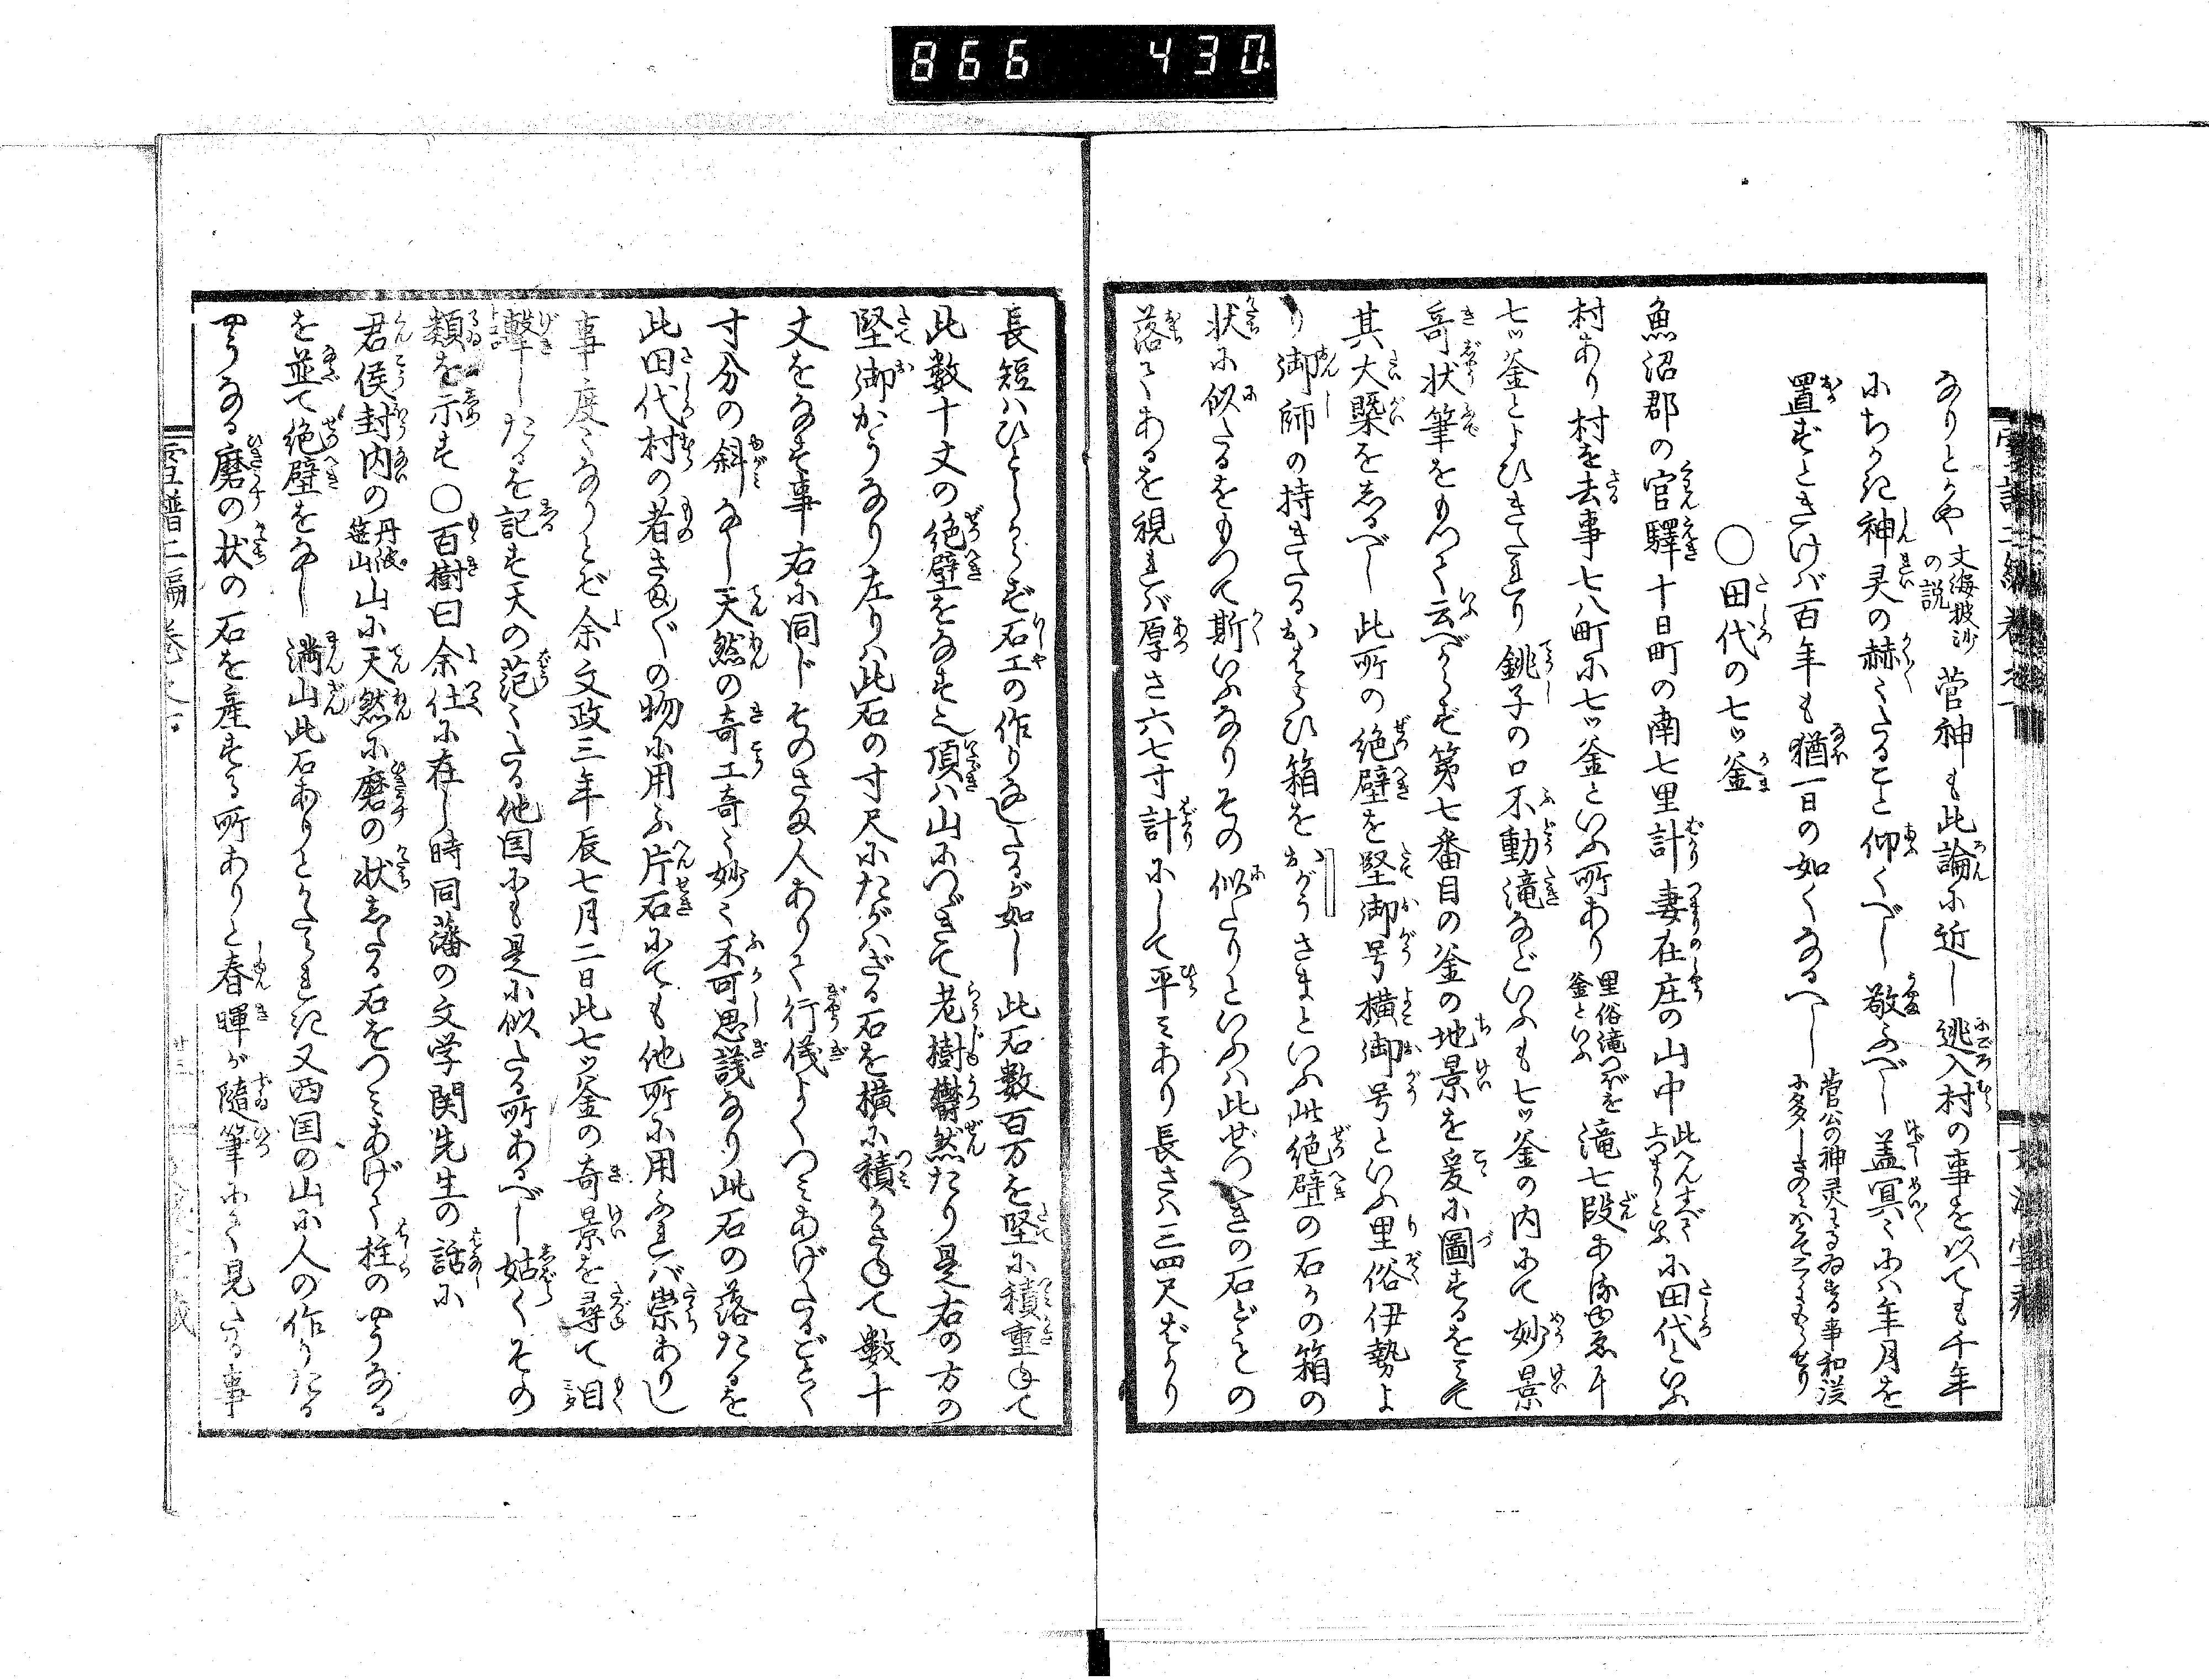 866 430
なりとかや 文海披沙の説 菅神も此論に近し逃入村の事を以ても千年
にちかき神灵の赫々たること仰くべし敬ふべし盖冥々にハ年月を
置ずときけバ百年も猶一日の如くなるへし 菅公の神灵にるゐする事和漢に多し
〇田代の七ッ釜
魚沼郡の官驛十日町の南七里計妻在庄の山中 此へんすべて上つまりといふ に田代といふ
村あり村を去事七八町に七ッ釜といふ所あり 里俗滝つぼを釜といふ 滝七段あるゆゑに
七ッ釜とよひきたれり銚子の口不動滝などいふも七ッ釜の内にて妙景
奇状筆をもつて云べからず第七番目の釜の地景を爰に圖するをみて
其大槩をしるべし此所の絶壁を竪御号横御号といふ里俗伊勢よ
り御師の持きたるおはらひ箱をおがうさまといふ此絶壁の石かの箱の
状に似たるをもつて斯いふなりその似たりといふハ此ぜつへきの石どもの
落てあるを視れバ厚さ六七寸計にして平みあり長さハ三四尺ばかり
長短ハひとしからず石工の作りなしたるが如し此石数百万を竪に積重ねて
此数十丈の絶壁をなす也頂ハ山につゞきて老樹欝然たり是右の方の
竪御がうなり左りハ此石の寸尺にたがハざる石を横に積かさねて数十
丈をなす事右に同じそのさま人ありて行儀よくつみあげたるごとく
寸分の斜なし天然の奇工奇々妙々不可思議なり此石の落たるを
此田代村の者さま〴〵の物に用ふ片石にても他所に用ふれバ崇ありし
事度々なりとぞ余文政三年辰七月二日此七ッ釜の奇景を尋て目
擊したるを記す天の茫々たる他国にも是に似たる所あるべし姑くその
類を示す〇百樹曰余仕に在し時同藩の文学関先生の話に
君侯封内の 丹波笹山 山に天然に磨の状したる石をつみあげて柱のやうなる
を並て絶壁をなし満山此石ありとかたられき又西国の山に人の作りたる
やうなる磨の状の石を産する所ありと春暉が随筆にて見たる事